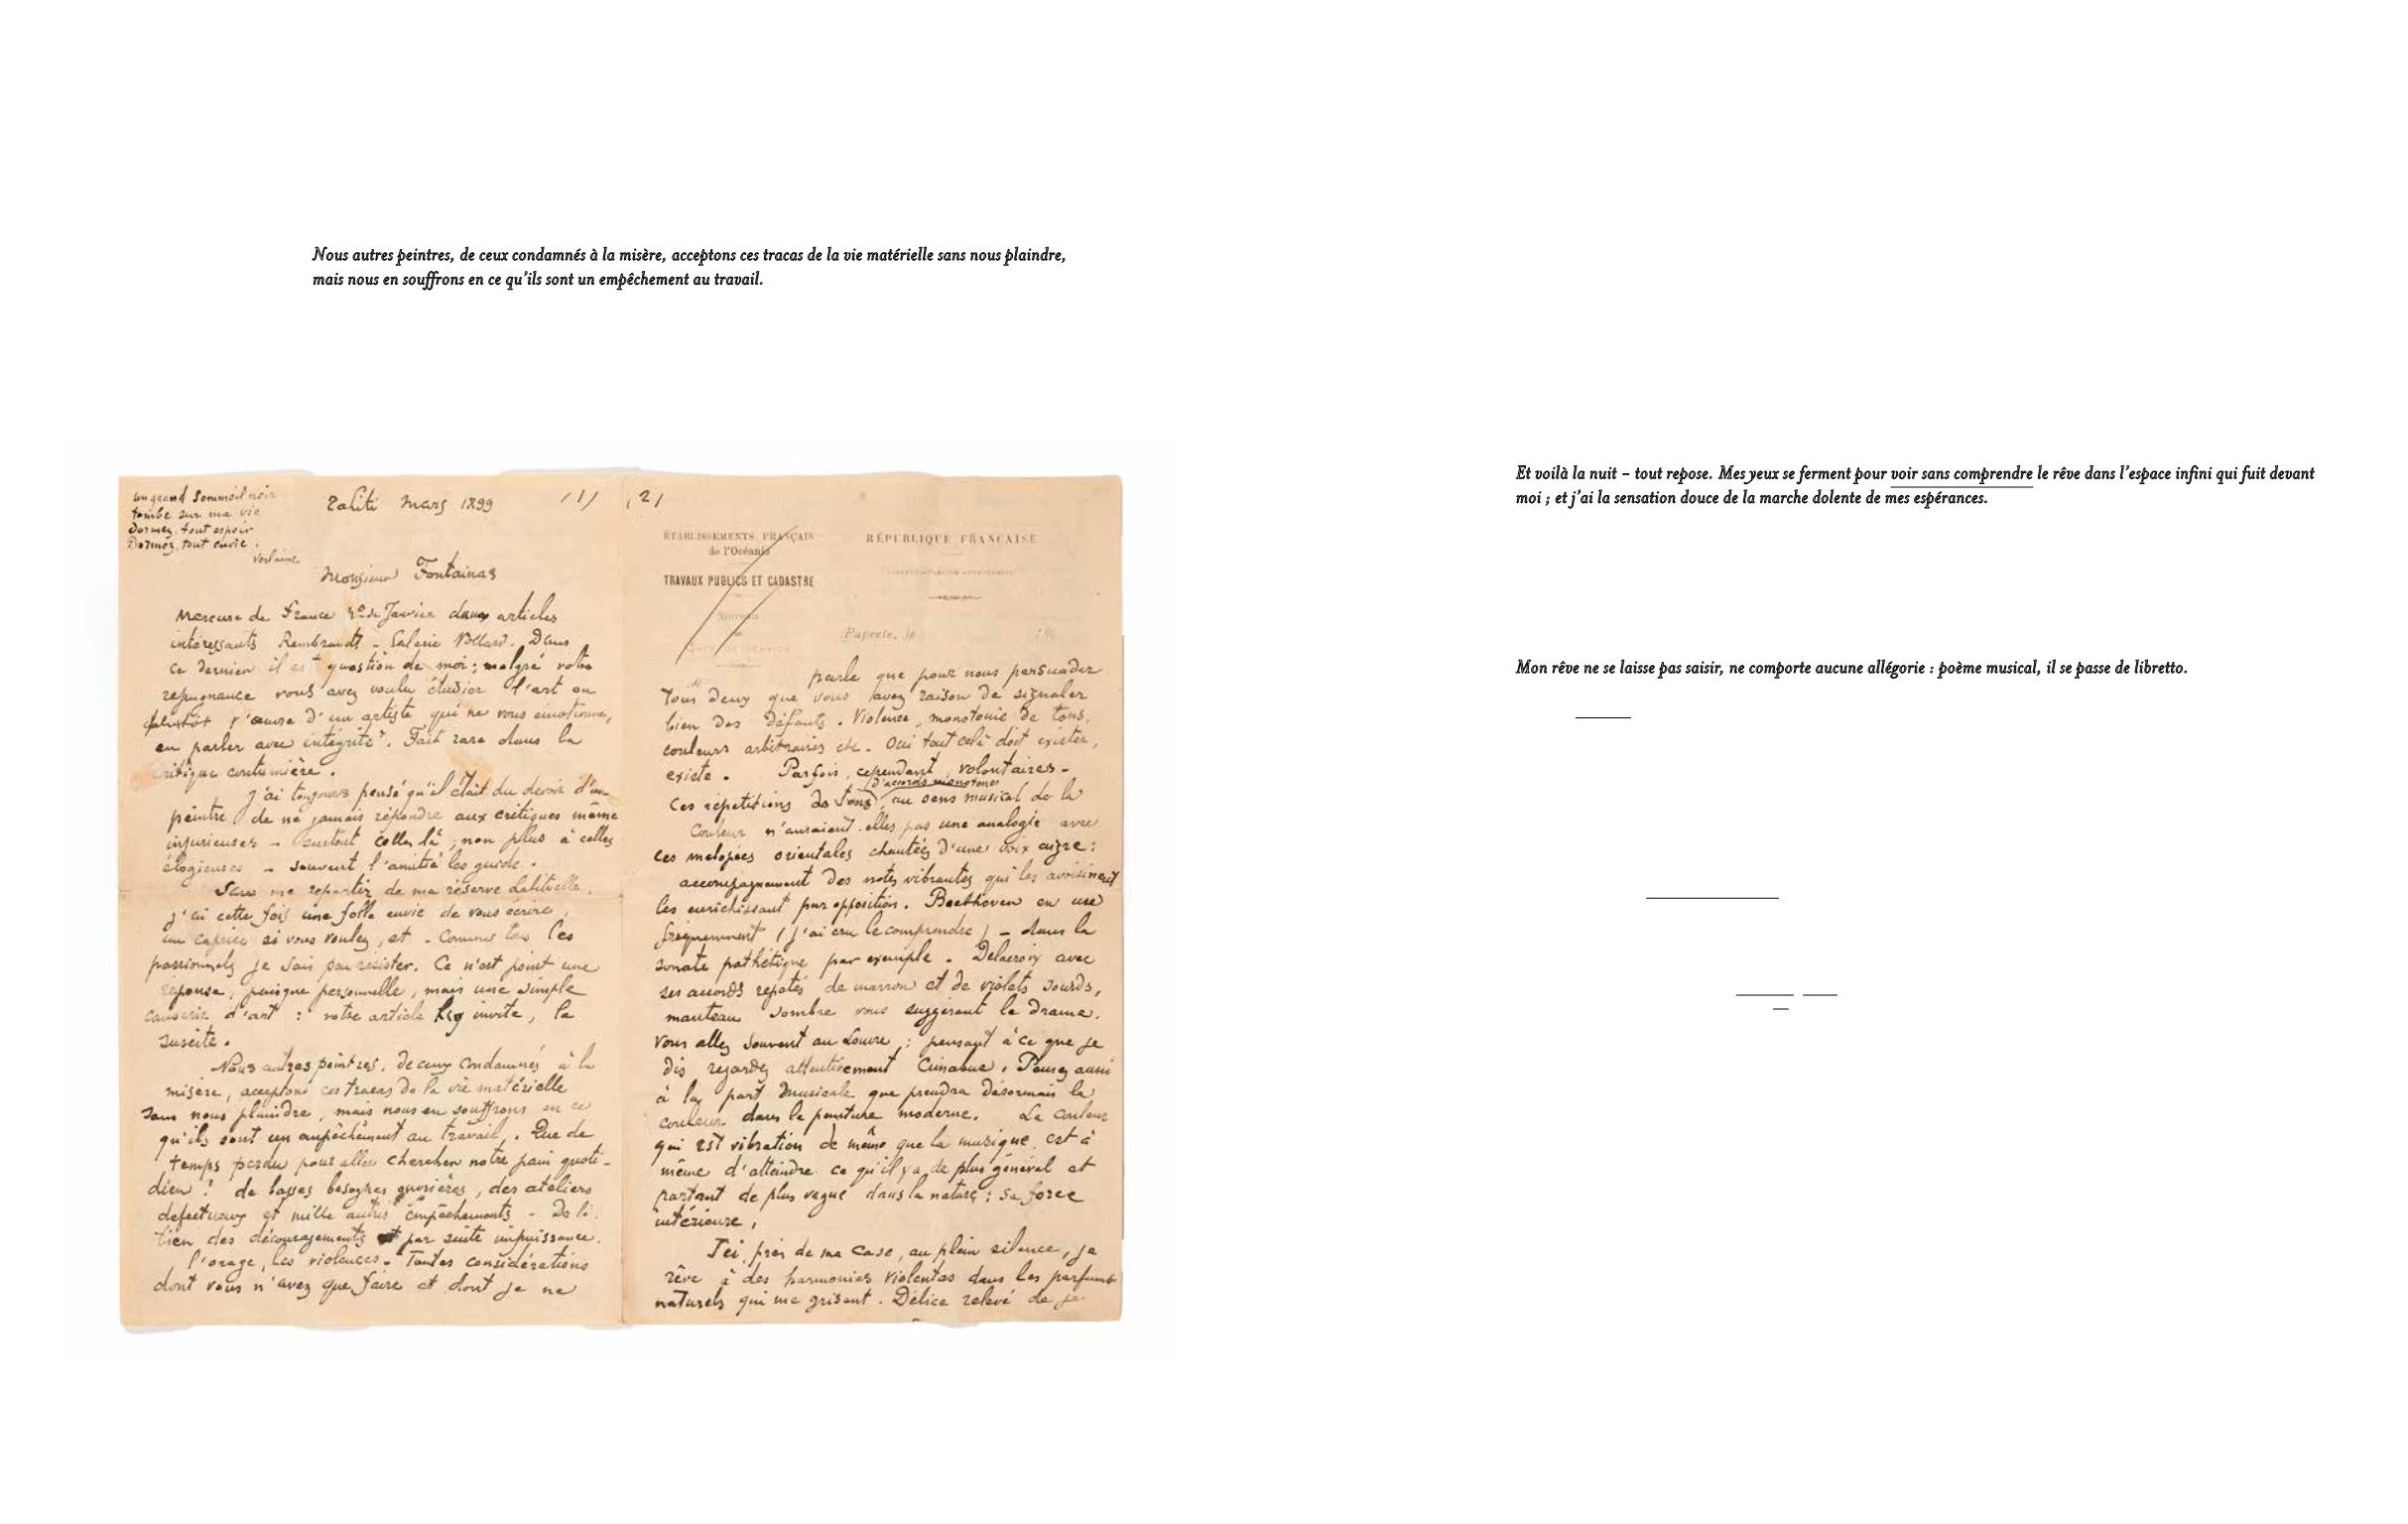 Nous autres peintres, de ceux condamnés à la misère, acceptons ces tracas de la vie matérielle sans nous plaindre,
mais nous en souffrons en ce qu’ils sont un empêchement au travail.
un grand sommeil noir
tombe sur ma vie
Dormez, tout espoir
Dormez, tout envie.
Verlaine
Taïti Mars 1899
/1/
Monsieur Fontainas
Mercure de France Janvier articles
intéressants Rembrandt - Galerie Vollard. Dans
ce dernier il est question de moi ; malgré votre
repugnance vous avez voulu étudier l'art ou
plutôt l'œuvre d'un artiste qui ne vous émotionne,
en parler avec intégrité. Fait rare dans la
critique coutumière.
J'ai toujours pensé qu'il était du devoir d'un
peintre de ne jamais répondre aux critiques même
injurieuses - surtout celles là ; non plus à celles
élogieuses - souvent l'amitié les guide.
Sans me départir de ma réserve habituelle,
j'ai cette fois une folle envie de vous écrire,
un caprice si vous voulez, et - comme tous les
passionnels je sais peu résister. Ce n'est point une
réponse, puisque personnelle, mais une simple
causerie d'art : votre article y invite, la
suscite.
Nous autres peintres, de ceux condamnés à la
misère, acceptons ces tracas de la vie matérielle
sans nous plaindre, mais nous en souffrons en ce
qu'ils sont un empêchement au travail. Que de
temps perdu pour aller chercher notre pain quoti-
dien ! de basses besognes ouvrières, des ateliers
defectueux et mille autres empêchements - De là
bien des découragements et par suite impuissance.
l'orage, les violences. Toutes considérations
dont vous n'avez que faire et dont je ne
/2/
ÉTABLISSEMENTS FRANÇAIS
de l'Océanie
TRAVAUX PUBLICS ET CADASTRE
RÉPUBLIQUE FRANÇAISE
Papeete, le
parle que pour nous persuader
tous deux que vous avez raison de signaler
bien des défauts. Violence, monotonie de tons,
couleurs arbitraires etc. Oui tout celà doit exister,
existe. Parfois, cependant, volontaires -
d'accords monotones
Ces répétitions de tons, au sens musical de la
couleur n'auraient-elles pas une analogie avec
ces melopées orientales chantées d'une voix aigre :
accompagnement des notes vibrantes qui les avoisinent
les enrichissant par opposition. Beethoven en use
fréquemment (j'ai cru le comprendre) - dans la
sonate pathétique par exemple. Delacroix avec
ses accords répétés de marron et de violets sourds,
manteau sombre vous suggérant le drame.
Vous allez souvent au Louvre : pensant à ce que je
dis regardez attentivement Cimabue. Pensez aussi
à la part musicale que prendra désormais la
couleur dans la peinture moderne. La couleur
qui est vibration de même que la musique est à
même d'atteindre ce qu'il y a de plus général et
partant de plus vague dans la nature : sa force
intérieure.
Ici, près de ma case, au plein silence, je
rêve à des harmonies violentes dans les parfums
naturels qui me grisent. Délice relevé de je
Et voilà la nuit – tout repose. Mes yeux se ferment pour voir sans comprendre le rêve dans l’espace infini qui fuit devant
moi ; et j’ai la sensation douce de la marche dolente de mes espérances.
Mon rêve ne se laisse pas saisir, ne comporte aucune allégorie : poème musical, il se passe de libretto.